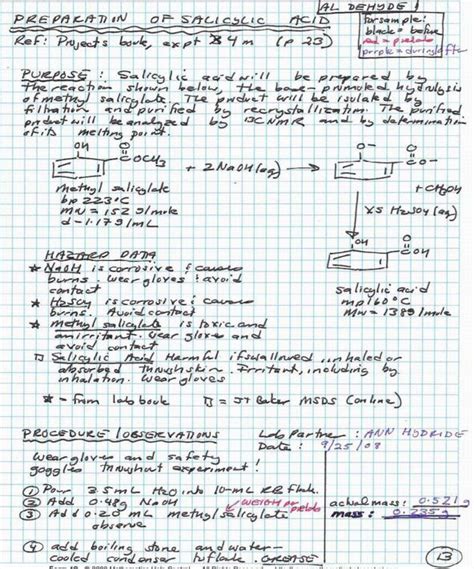 AL DEHYDE
PREPARATION OF SALICYLIC ACID
for sample:
black = before
red = prelab
purple = during/after
Ref: Projects book, expt 4m (p 23)
PURPOSE: Salicylic acid will be prepared by
the reaction shown below, the base-promoted hydrolysis
of methyl salicylate. The product will be isolated by
filtration and purified by recrystallization. The purified
product will be analyzed by 13C NMR and by determination
of its melting point.
OH O
COCH3 + 2 NaOH (aq) →
O⁻ O
CO⁻
+ CH3OH
methyl salicylate
bp 223°C
MW = 152 g/mole
d = 1.179/mL
XS H2SO4 (aq)
OH O
COH
salicylic acid
mp 160°C
MW = 138 g/mole
HAZARD DATA
* NaOH is corrosive & causes
burns. Wear gloves & avoid
contact
* H2SO4 is corrosive & causes
burns. Avoid contact
* methyl salicylate is toxic and
an irritant. Wear gloves and
avoid contact
Salicylic Acid Harmful if swallowed, inhaled or
absorbed through skin. Irritant, including by
inhalation. Wear gloves
* - from lab book = JT Baker MSDS (online)
PROCEDURE/OBSERVATIONS
Lab Partner: ANN HYDRIDE
Date: 9/25/08
Wear gloves and safety
goggles throughout experiment!
① Pour 2.5mL H2O into 10-mL RB flask.
② Add 0.48g NaOH
③ Add 0.20 mL methyl salicylate
observe
WEIGH per prelab
actual mass: 0.521g
mass: 0.235g
④ add boiling stone and water-
cooled condenser to flask. GREASE
13